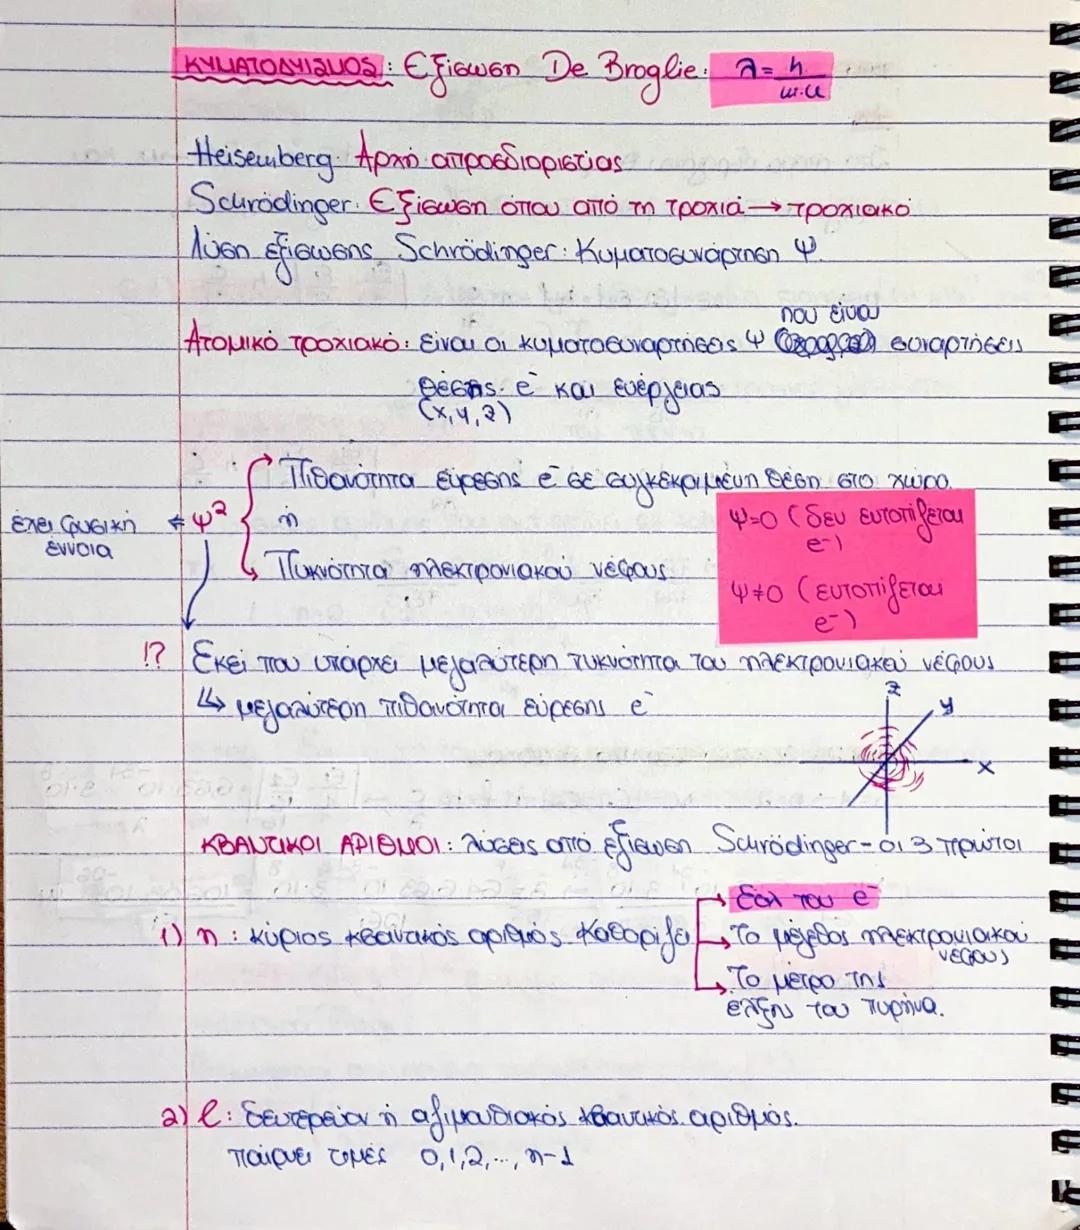 ΚΥΜΑΤΟΔΥΙΣΜΟΣ: Εξίσωση De Broglie: λ = h / m.u
Heisenberg: Αρχή απροσδιοριστίας
Schrödinger: Εξίσωση όπου από τη τροχιά → τροχιακό
Λύση εξίσωσης Schrödinger: Κυματοσυνάρτηση Ψ.
που είναι
Ατομικό τροχιακό: είναι οι κυματοσυναρτήσεις Ψ συναρτήσεις
θέσης e⁻ και ενέργειας
(x,y,z)
Πιθανότητα εύρεσης e⁻ σε συγκεκριμένη θέση στο χώρο.
έχει φυσική ← Ψ² ή
έννοια
Πυκνότητα ηλεκτρονιακού νέφους.
Ψ=0 (δεν εντοπίζεται
e⁻)
Ψ≠0 (εντοπίζεται
e⁻)
!? Εκεί που υπάρχει μεγαλύτερη πυκνότητα του ηλεκτρονιακού νέφους
↳ μεγαλύτερη πιθανότητα εύρεσης e⁻
z
y
x
ΚΒΑΝΤΙΚΟΙ ΑΡΙΘΜΟΙ: λύσεις από εξίσωση Schrödinger - οι 3 πρώτοι
→ Εολ του e⁻
1) n: κύριος κβαντικός αριθμός. Καθορίζει → Το μέγεθος ηλεκτρονιακού
νέφους
→ Το μέτρο της
έλξης του πυρήνα.
2) l: δευτερεύον ή αζιμουθιακός κβαντικός αριθμός.
παίρνει τιμές 0,1,2,..., n-1